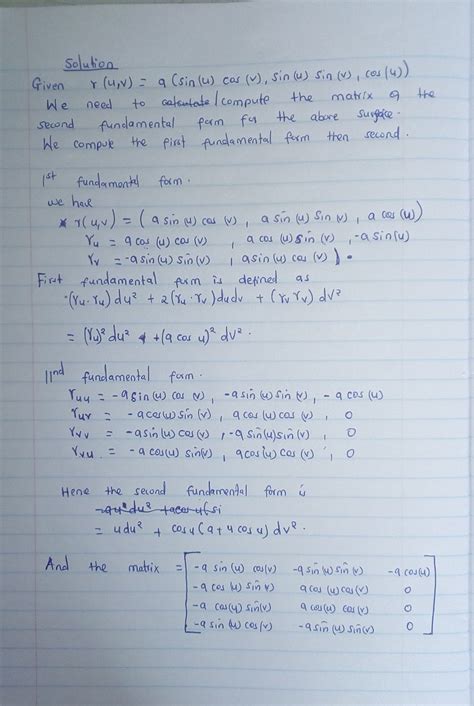 Solution
Given r(u,v) = a (sin(u) cos(v), sin(u) sin(v), cos(u))
We need to calculate/compute the matrix of the
second fundamental form for the above surface.
We compute the first fundamental form then second.
1st fundamental form.
we have
* r(u,v) = (a sin(u) cos(v), a sin(u) sin(v), a cos(u))
ru = a cos(u) cos(v), a cos(u) sin(v), -a sin(u)
rv = -a sin(u) sin(v), a sin(u) cos(v)).
First fundamental form is defined as
(ru·ru) du² + 2(ru·rv) dudv + (rv rv) dv²
= (ru)² du² + (a cos u)² dv².
IInd fundamental form.
ruu = -a sin(u) cos(v), -a sin(u) sin(v), -a cos(u)
ruv = -a cos(u) sin(v), a cos(u) cos(v), 0
rvv = -a sin(u) cos(v), -a sin(u) sin(v), 0
rvu = -a cos(u) sin(v), a cos(u) cos(v), 0
Hence the second fundamental form is
= udu² + cosu (a + u cos u) dv².
And the matrix = [ -a sin(u) cos(v) -a sin(u) sin(v) -a cos(u)
-a cos(u) sin(v) a cos(u) cos(v) 0
-a cos(u) sin(v) a cos(u) cos(v) 0
-a sin(u) cos(v) -a sin(u) sin(v) 0 ]